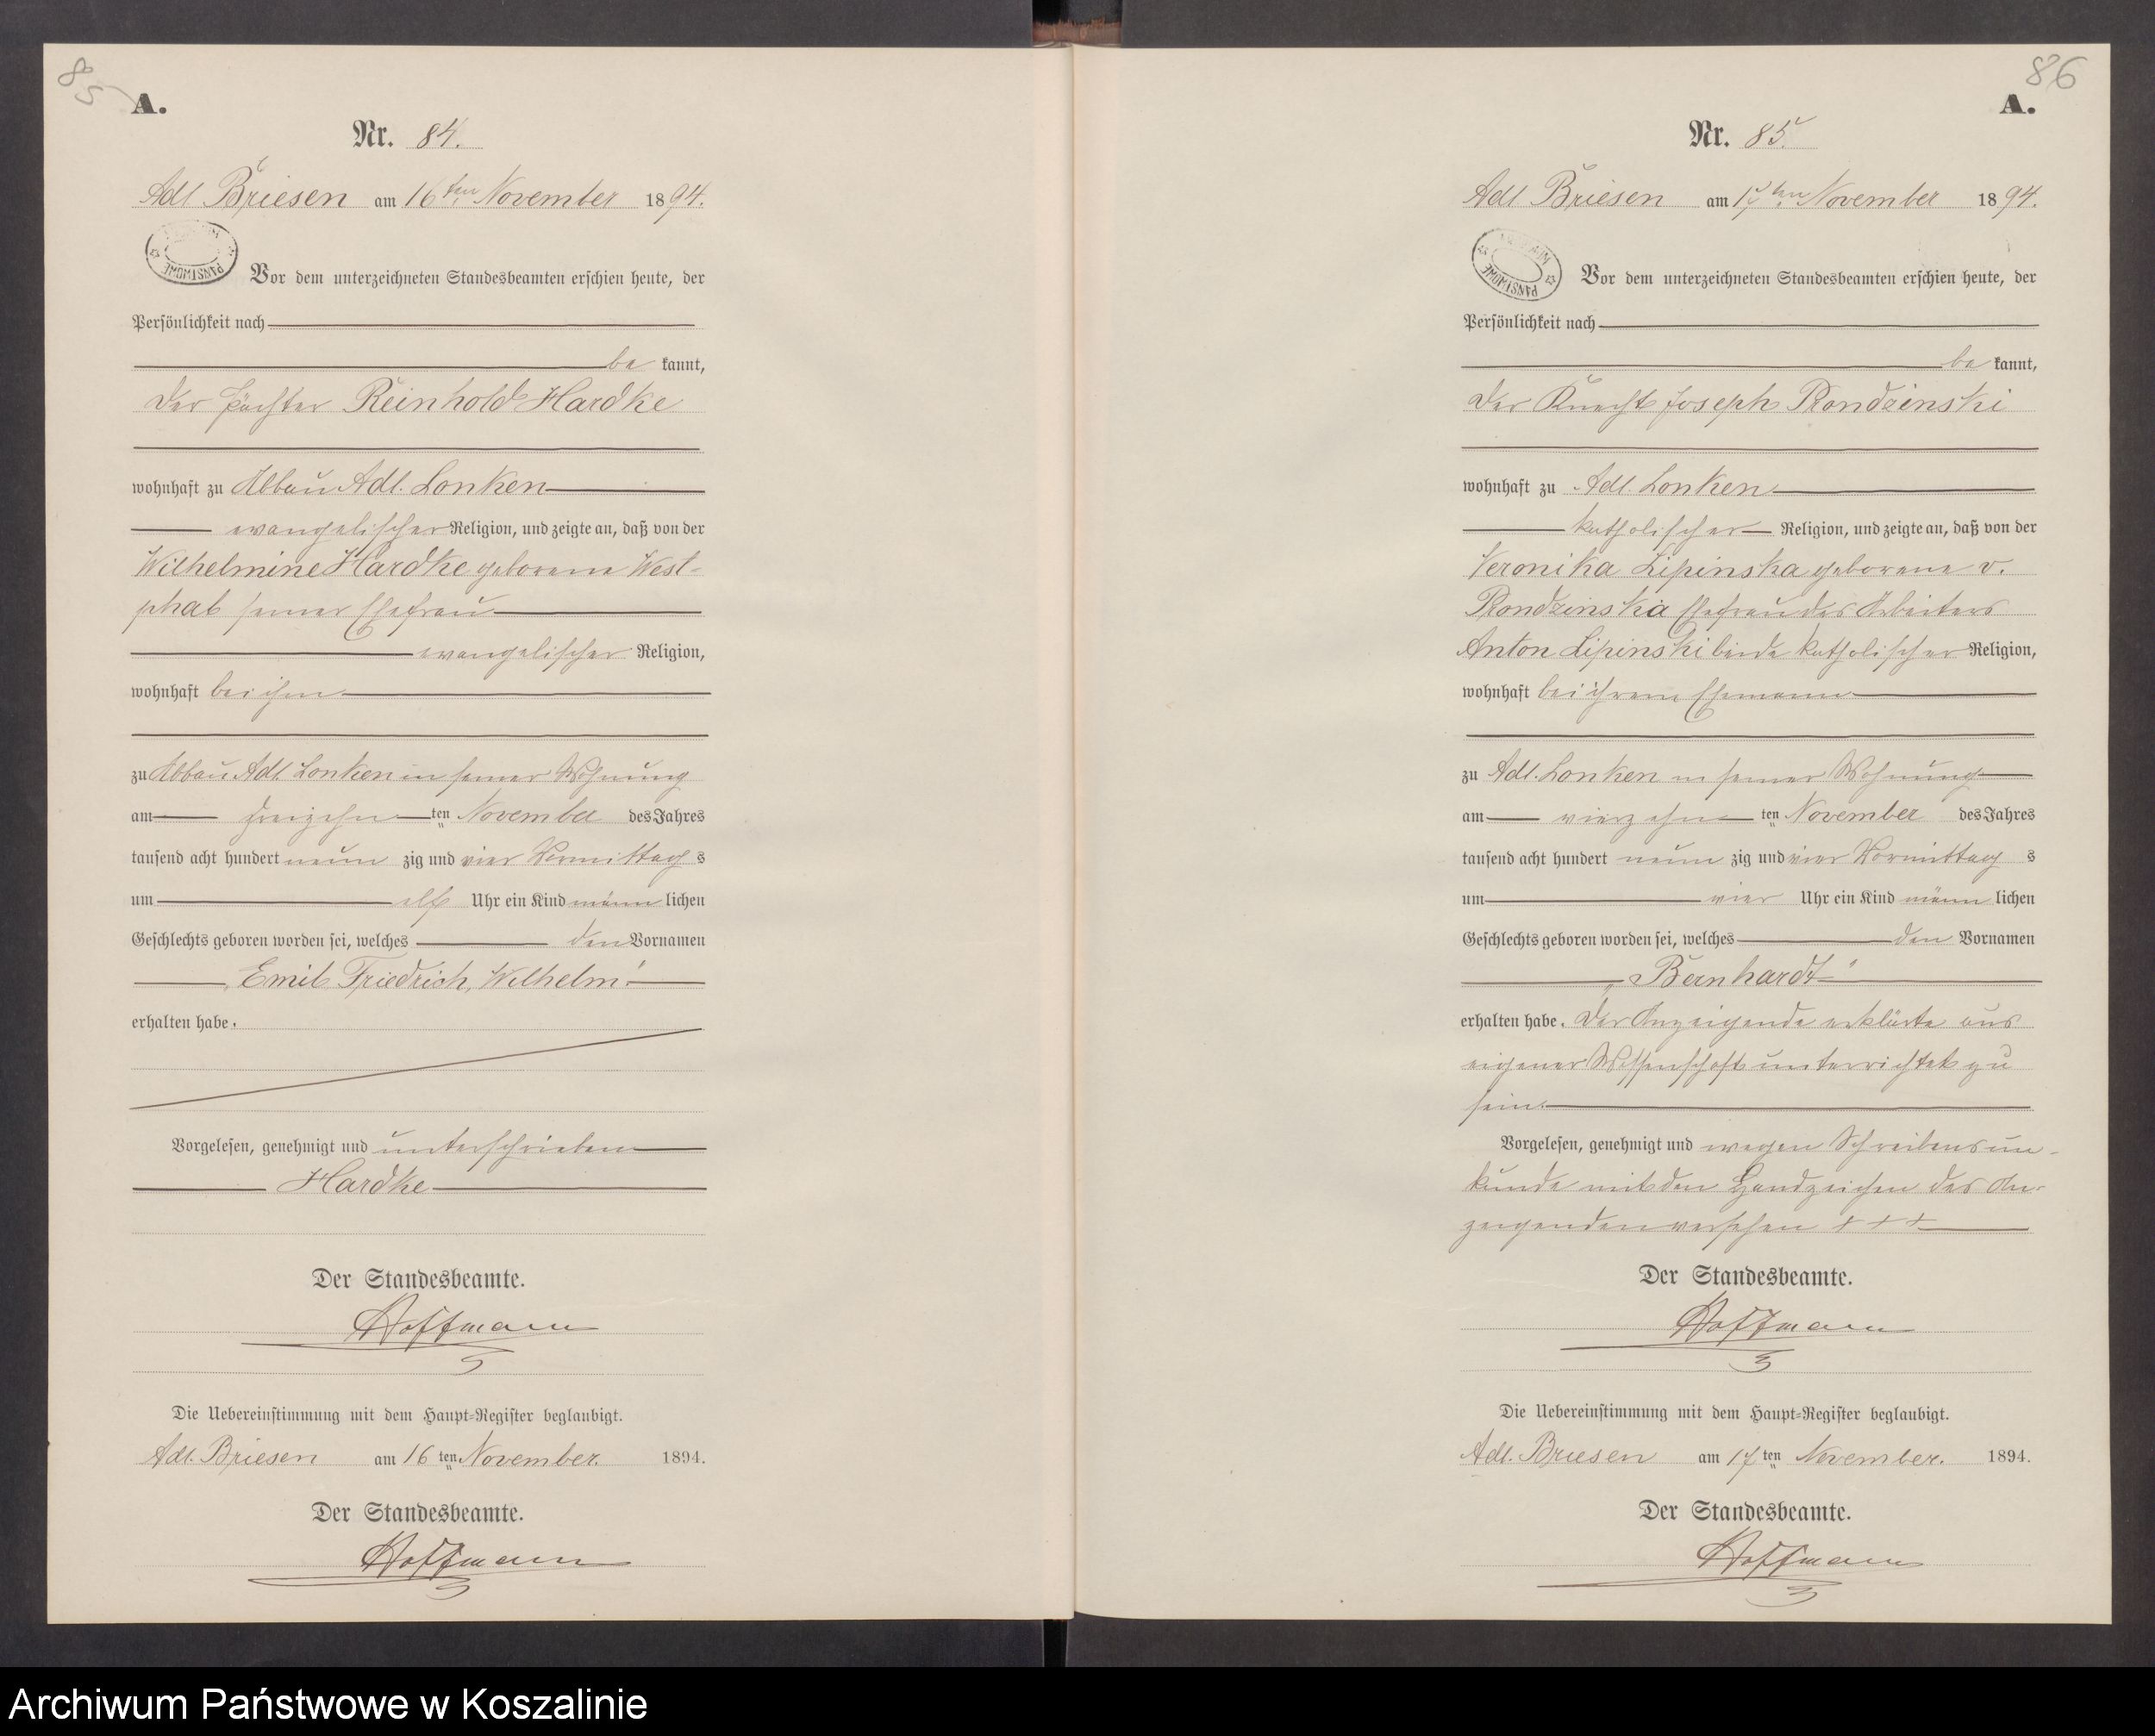 85
A.
Nr. 84.
Adl Briesen am 16ten November 1894.
PANSTWOWE
Vor dem unterzeichneten Standesbeamten erschien heute, der
Persönlichkeit nach
be kannt,
der Pächter Reinhold Hardke
wohnhaft zu Abbau Adl. Lonken
evangelischer Religion, und zeigte an, daß von der
Wilhelmine Hardke geborene West-
phal seiner Ehefrau
evangelischer Religion,
wohnhaft bei ihm
zu Abbau Adl Lonken in seiner Wohnung
am dreizehn ten November des Jahres
tausend acht hundert neun zig und vier Vormittag s
um elf Uhr ein Kind männ lichen
Geschlechts geboren worden sei, welches den Vornamen
„Emil Friedrich, Wilhelm"
erhalten habe.
Vorgelesen, genehmigt und unterschrieben
Hardke
Der Standesbeamte.
Hoffmann
Die Uebereinstimmung mit dem Haupt-Register beglaubigt.
Adl. Briesen am 16 ten November. 1894.
Der Standesbeamte.
Hoffmann
86
A.
Nr. 85.
Adl Briesen am 17ten November 1894.
PANSTWOWE
Vor dem unterzeichneten Standesbeamten erschien heute, der
Persönlichkeit nach
be kannt,
der Knecht Joseph Rondzinski
wohnhaft zu Adl. Lonken
katholischer Religion, und zeigte an, daß von der
Veronika Lipinska geborene v.
Rondzinska Ehefrau des Arbeiters
Anton Lipinski beide katholischer Religion,
wohnhaft bei ihrem Ehemann
zu Adl. Lonken in seiner Wohnung
am vierzehn ten November des Jahres
tausend acht hundert neun zig und vier Vormittag s
um vier Uhr ein Kind männ lichen
Geschlechts geboren worden sei, welches den Vornamen
„Bernhardt"
erhalten habe. Der Anzeigende erklärte aus
eigener Wissenschaft unterrichtet zu
sein.
Vorgelesen, genehmigt und wegen Schreibensun-
kunde mit den Handzeichen des An-
zeigenden versehen + + +
Der Standesbeamte.
Hoffmann
Die Uebereinstimmung mit dem Haupt-Register beglaubigt.
Adl. Briesen am 17 ten November. 1894.
Der Standesbeamte.
Hoffmann
Archiwum Państwowe w Koszalinie